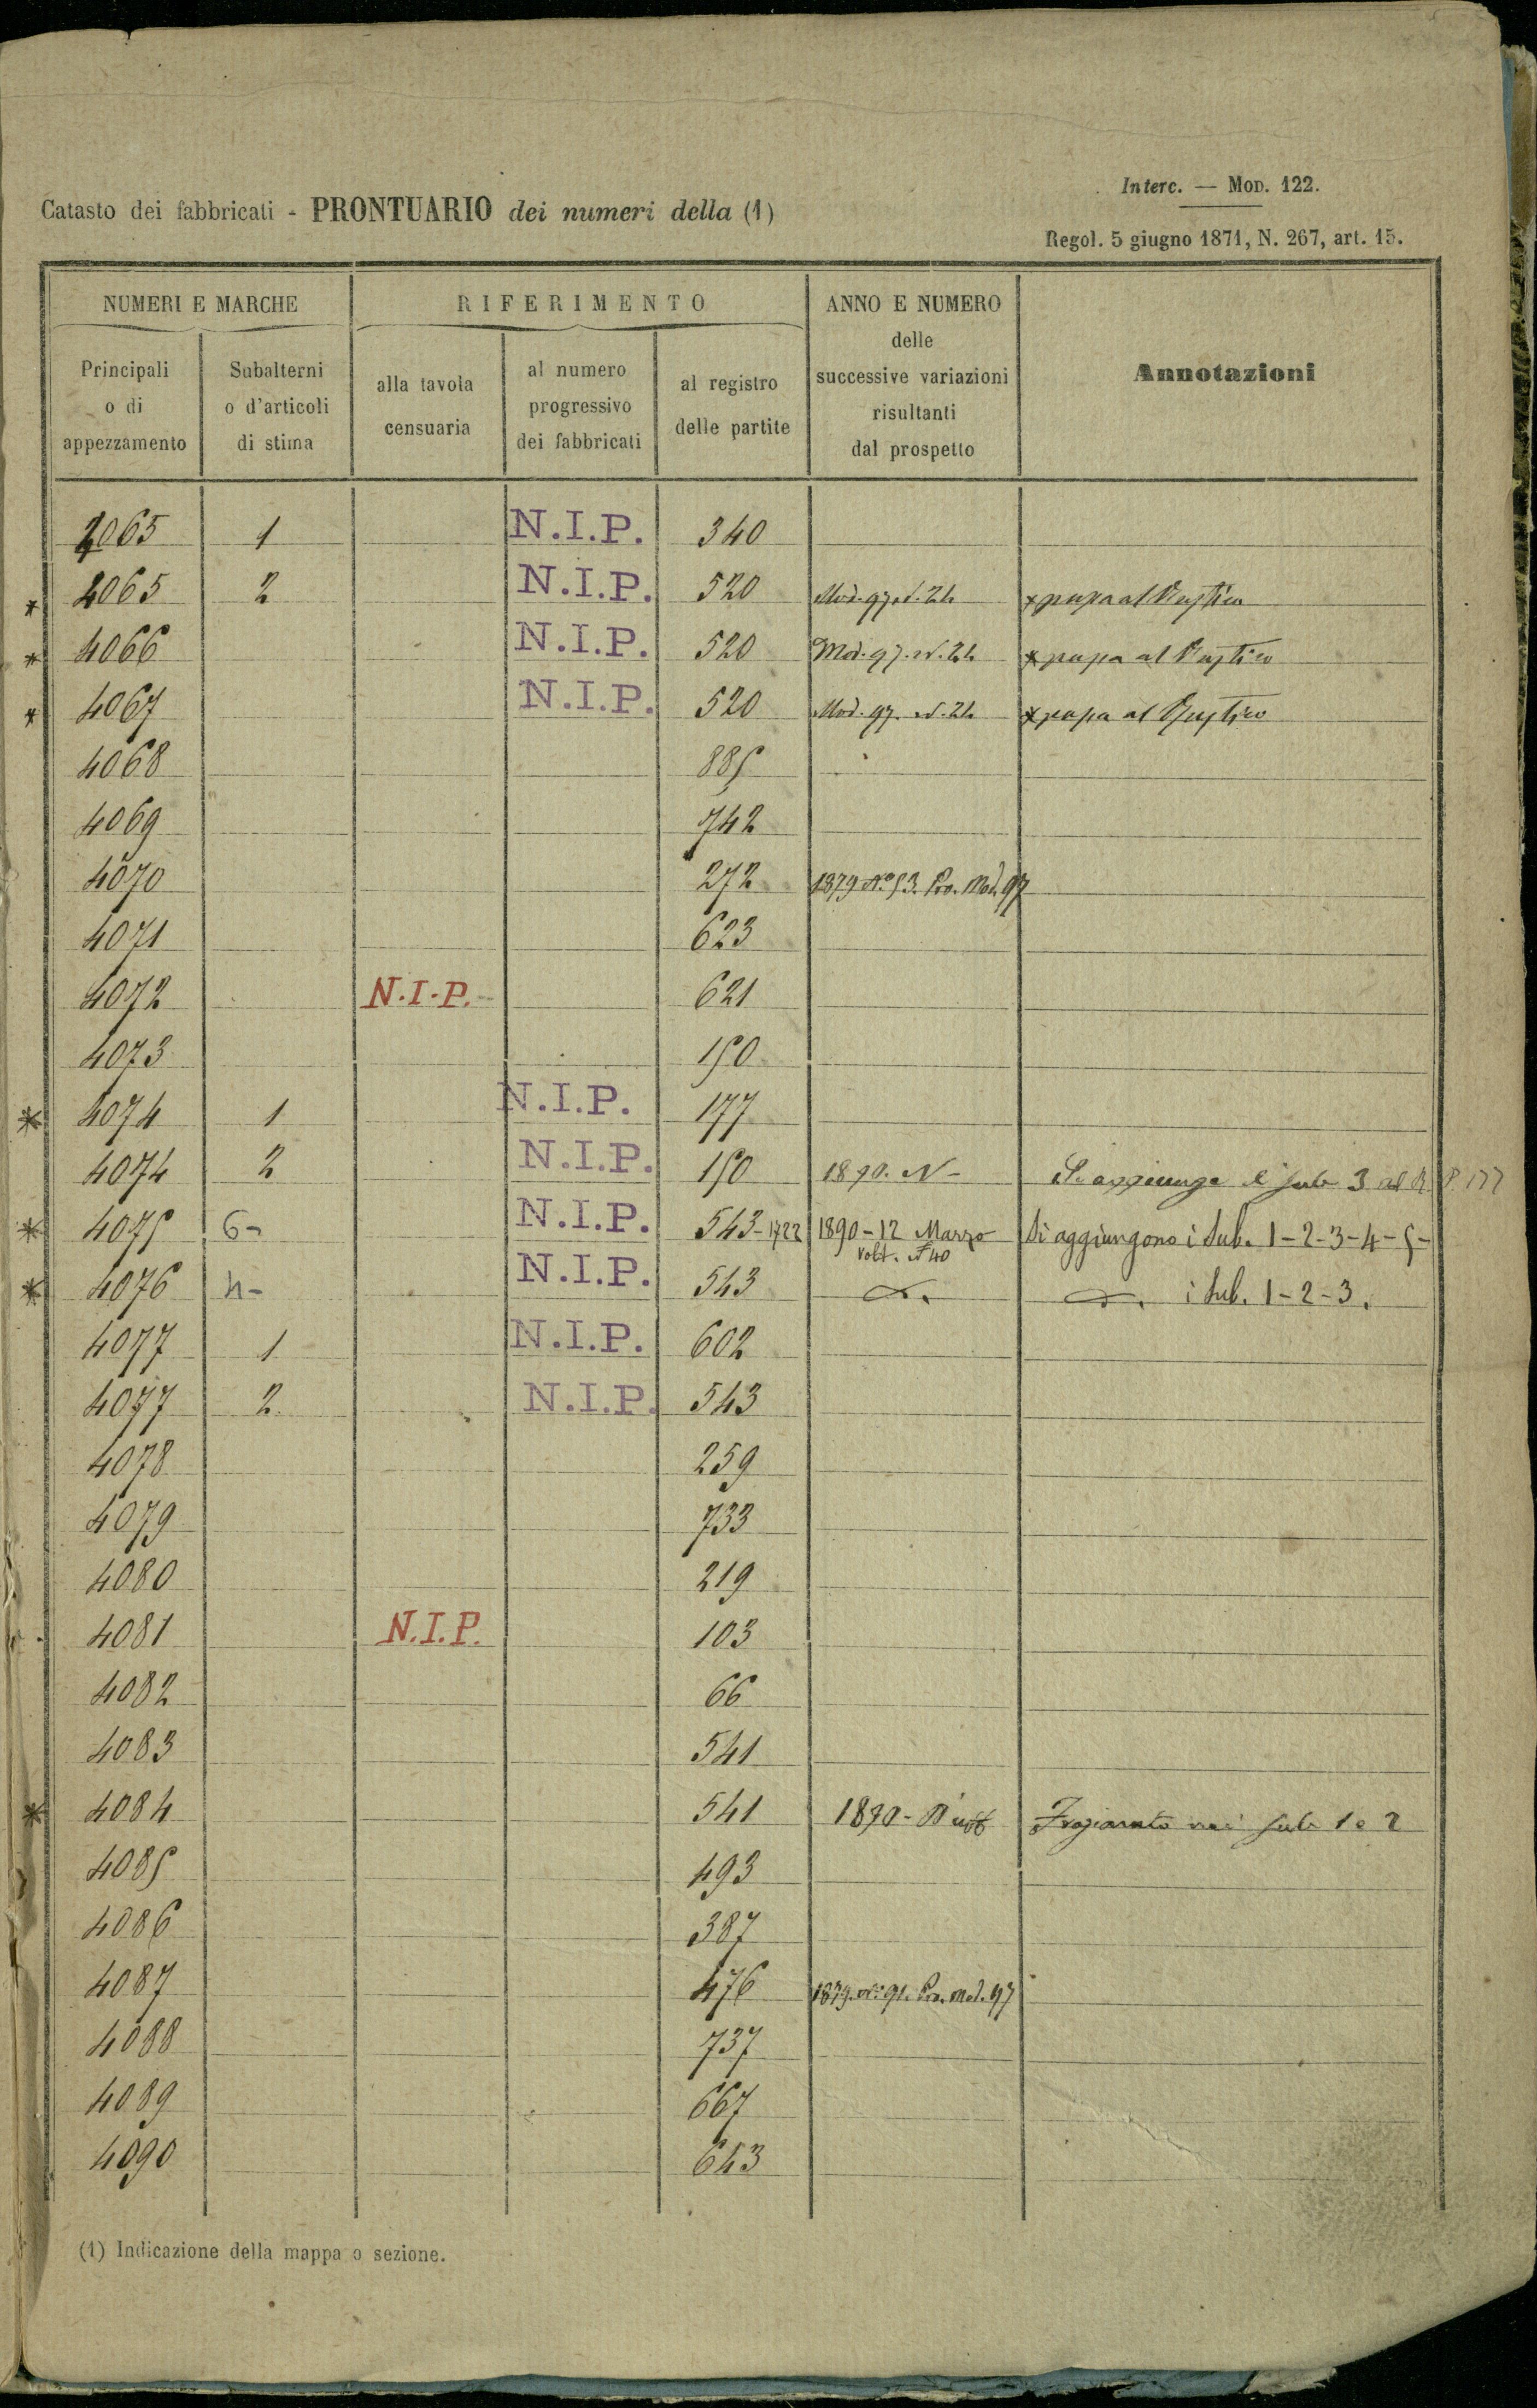 Interc. — Mod. 122.
Catasto dei fabbricati - PRONTUARIO dei numeri della (1)
Regol. 5 giugno 1871, N. 267, art. 15.
NUMERI E MARCHE
RIFERIMENTO
ANNO E NUMERO
delle
successive variazioni
risultanti
dal prospetto
Annotazioni
Principali
o di
appezzamento
Subalterni
o d'articoli
di stima
alla tavola
censuaria
al numero
progressivo
dei fabbricati
al registro
delle partite
4065 1 N.I.P. 340
* 4065 2 N.I.P. 520 Mod. 97. N. 24 * passa al Rustico
* 4066 N.I.P. 520 Mod. 97. N. 24 * passa al Rustico
* 4067 N.I.P. 520 Mod. 97. N. 24 * passa al Rustico
4068 885
4069 742
4070 272 1879 No 53. Pro. Mod. 97
4071 623
4072 N.I.P. 621
4073 150
* 4074 1 N.I.P. 177
4074 2 N.I.P. 150 1890. N- Si aggiunge il sub 3 al R P. 177
* 4075 6- N.I.P. 543-1722 1890-12 Marzo Si aggiungono i Sub. 1-2-3-4-5-
Volt. N 40
* 4076 4- N.I.P. 543 i Sub. 1-2-3.
4077 1 N.I.P. 602
4077 2 N.I.P. 543
4078 259
4079 733
4080 219
4081 N.I.P. 103
4082 66
4083 541
* 4084 541 1890- Frazionato nei sub 1 e 2
4085 493
4086 387
4087 476 1879. No 91. Pro. Mod. 97
4088 737
4089 667
4090 643
(1) Indicazione della mappa o sezione.